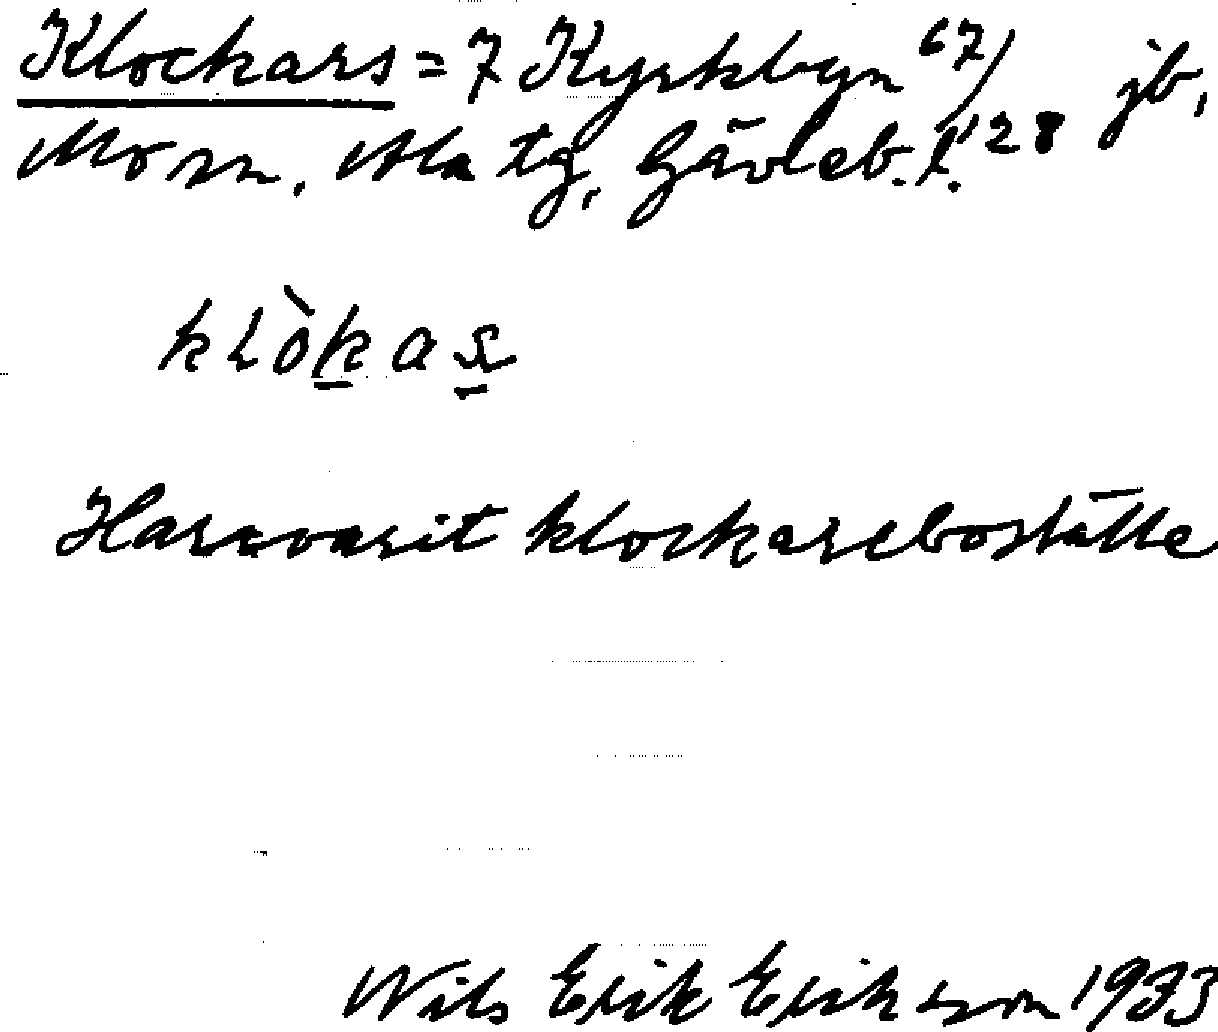 Klockars = 7 Kyrkbyn 67/128 jb,
Mo sn. Ala tg, Gävleb. l.
klòkas
Har varit klockareboställe
Nils Erik Erikson 1933